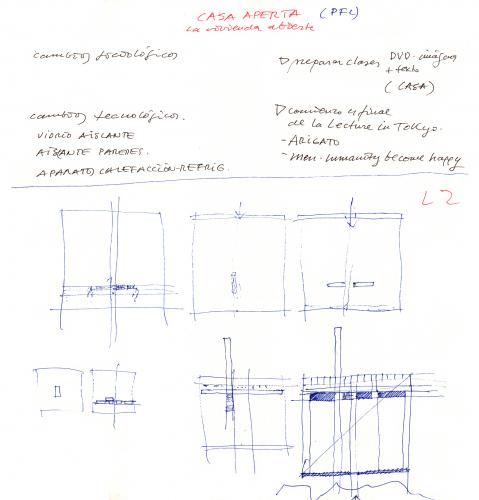 CASA APERTA (PFL)
La vivienda abierta
cambios sociológicos
▷ preparar clases DVD · imágenes
+ texto
(CASA)
cambios tecnológicos.
VIDRIO AISLANTE
AISLANTE PAREDES.
APARATOS CALEFACCIÓN-REFRIG.
▷ comienzo y final
de la Lecture in Tokyo.
- ARIGATO
- Men · humanity become happy
L2